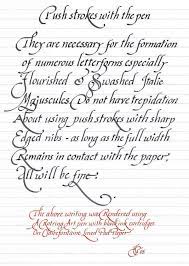 Push strokes with the pen
They are necessary for the formation
of numerous letterforms especially
Flourished & Swashed Italic
Majuscules. Do not have trepidation
About using push strokes with sharp
Edged nibs - as long as the full width
Remains in contact with the paper,
All will be fine.
The above writing was Rendered using
A Rotring Art pen with black ink cartridges
On Guildhall lined Pad Paper